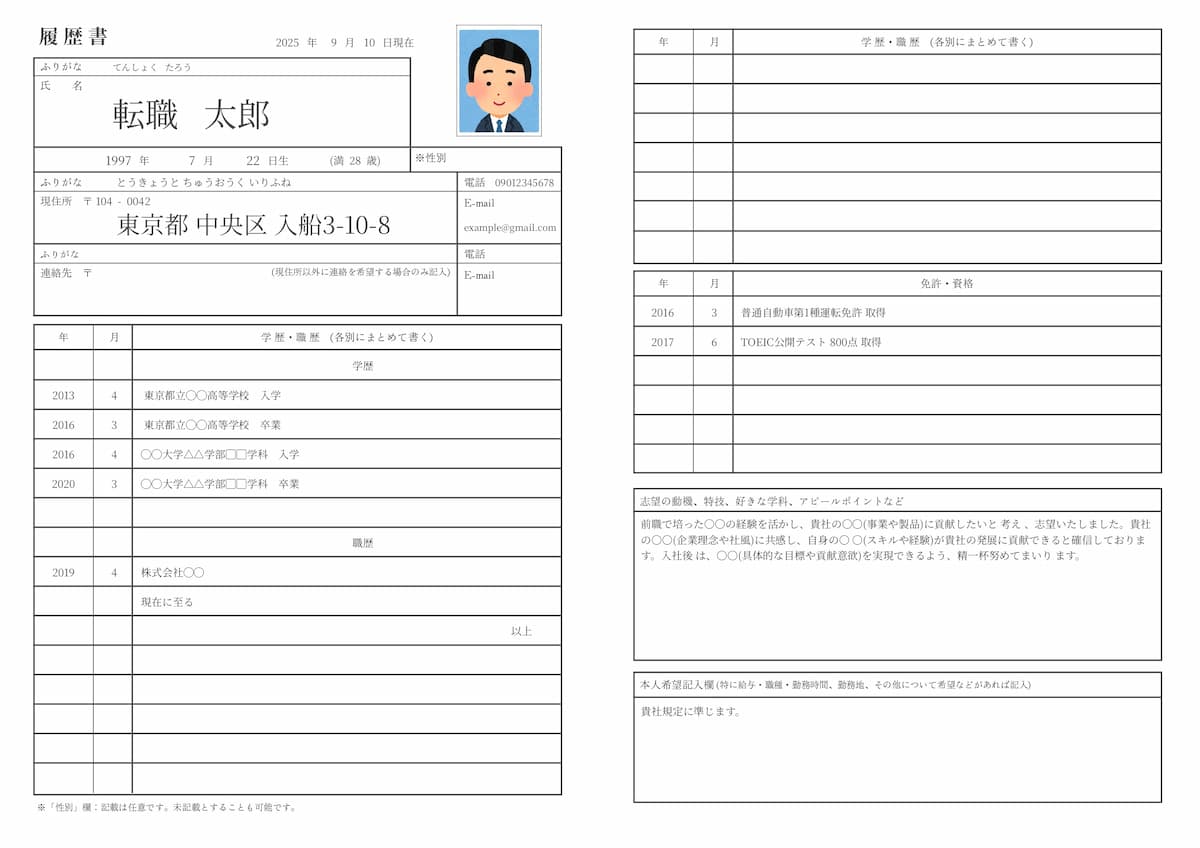 履歴書
2025 年 9 月 10 日現在
ふりがな てんしょく たろう
氏 名
転職 太郎
1997 年 7 月 22 日生 (満 28 歳)
※性別
ふりがな とうきょうと ちゅうおうく いりふね
電話 09012345678
現住所 〒104 - 0042
東京都 中央区 入船3-10-8
E-mail
example@gmail.com
ふりがな
電話
連絡先 〒 (現住所以外に連絡を希望する場合のみ記入)
E-mail
年 月 学 歴・職 歴 (各別にまとめて書く)
学歴
2013 4 東京都立〇〇高等学校 入学
2016 3 東京都立〇〇高等学校 卒業
2016 4 〇〇大学△△学部□□学科 入学
2020 3 〇〇大学△△学部□□学科 卒業
職歴
2019 4 株式会社〇〇
現在に至る
以上
※「性別」欄：記載は任意です。未記載とすることも可能です。
年 月 学 歴・職 歴 (各別にまとめて書く)
年 月 免許・資格
2016 3 普通自動車第1種運転免許 取得
2017 6 TOEIC公開テスト 800点 取得
志望の動機、特技、好きな学科、アピールポイントなど
前職で培った〇〇の経験を活かし、貴社の〇〇(事業や製品)に貢献したいと 考え 、志望いたしました。貴社
の〇〇(企業理念や社風)に共感し、自身の〇 〇(スキルや経験)が貴社の発展に貢献できると確信しておりま
す。入社後 は、〇〇(具体的な目標や貢献意欲)を実現できるよう、精一杯努めてまいり ます。
本人希望記入欄 (特に給与・職種・勤務時間、勤務地、その他について希望などがあれば記入)
貴社規定に準じます。